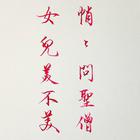 悄〻問聖僧
女兒美不美